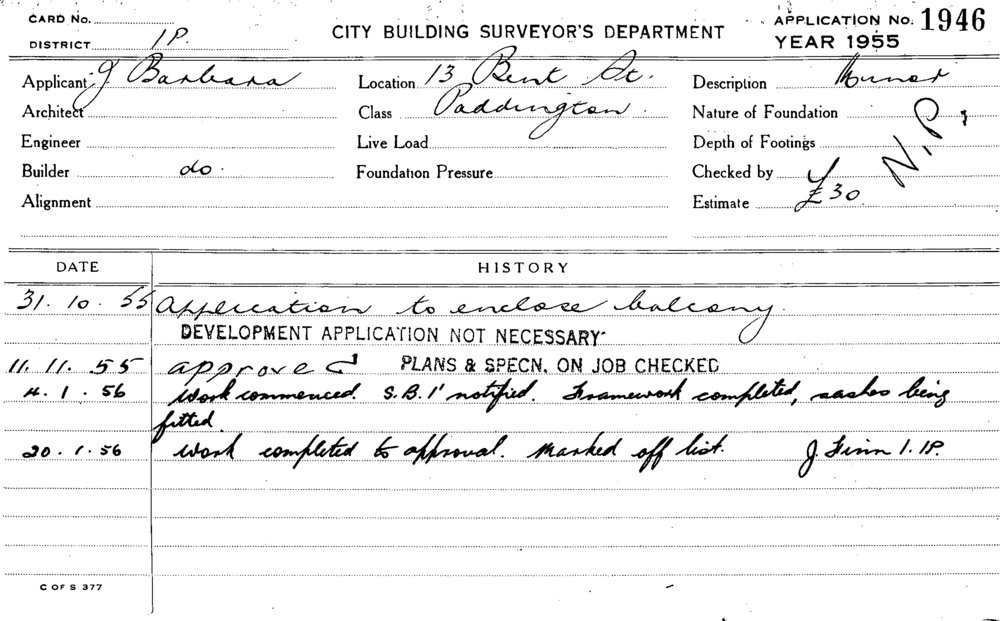 CARD No.
DISTRICT 1P.
CITY BUILDING SURVEYOR'S DEPARTMENT
APPLICATION No. 1946
YEAR 1955
Applicant J Barbara
Location 13 Bent St.
Description Minor
Architect
Class Paddington.
Nature of Foundation
Engineer
Live Load
Depth of Footings
N.P.
Builder do.
Foundation Pressure
Checked by
Alignment
Estimate £30
DATE
HISTORY
31.10.55 Application to enclose balcony.
DEVELOPMENT APPLICATION NOT NECESSARY
11.11.55 approved PLANS & SPECN. ON JOB CHECKED
4.1.56 Work commenced. S.B.I' notified. Framework completed, sashes being
fitted.
20.1.56 Work completed to approval. Marked off list. J Finn 1.1P.
C OF S 377